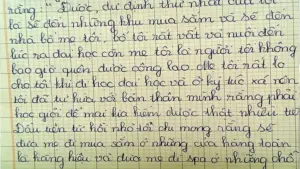 rằng : " Được, dự định thứ nhất của tôi
là sẽ đến những khu mua sắm và sẽ đến
nhà bố mẹ tôi. bố tôi rất vất và nuôi đến
lúc ra đại học còn mẹ tôi là người tôi không
bao giờ quên được công lao. Mẹ tôi rất lo
cho tôi khi đi học đại học và ở ký túc xá nên
tôi đã tự hứa với bản thân mình rằng phải
học giỏi để mai kia kiếm được thật nhiều tiền
Đầu tiên từ hồi nhỏ tôi chỉ mong rằng sẽ
đưa mẹ đi mua sắm ở những cửa hàng toàn
là hàng hiệu và đưa mẹ đi spa ở những chỗ